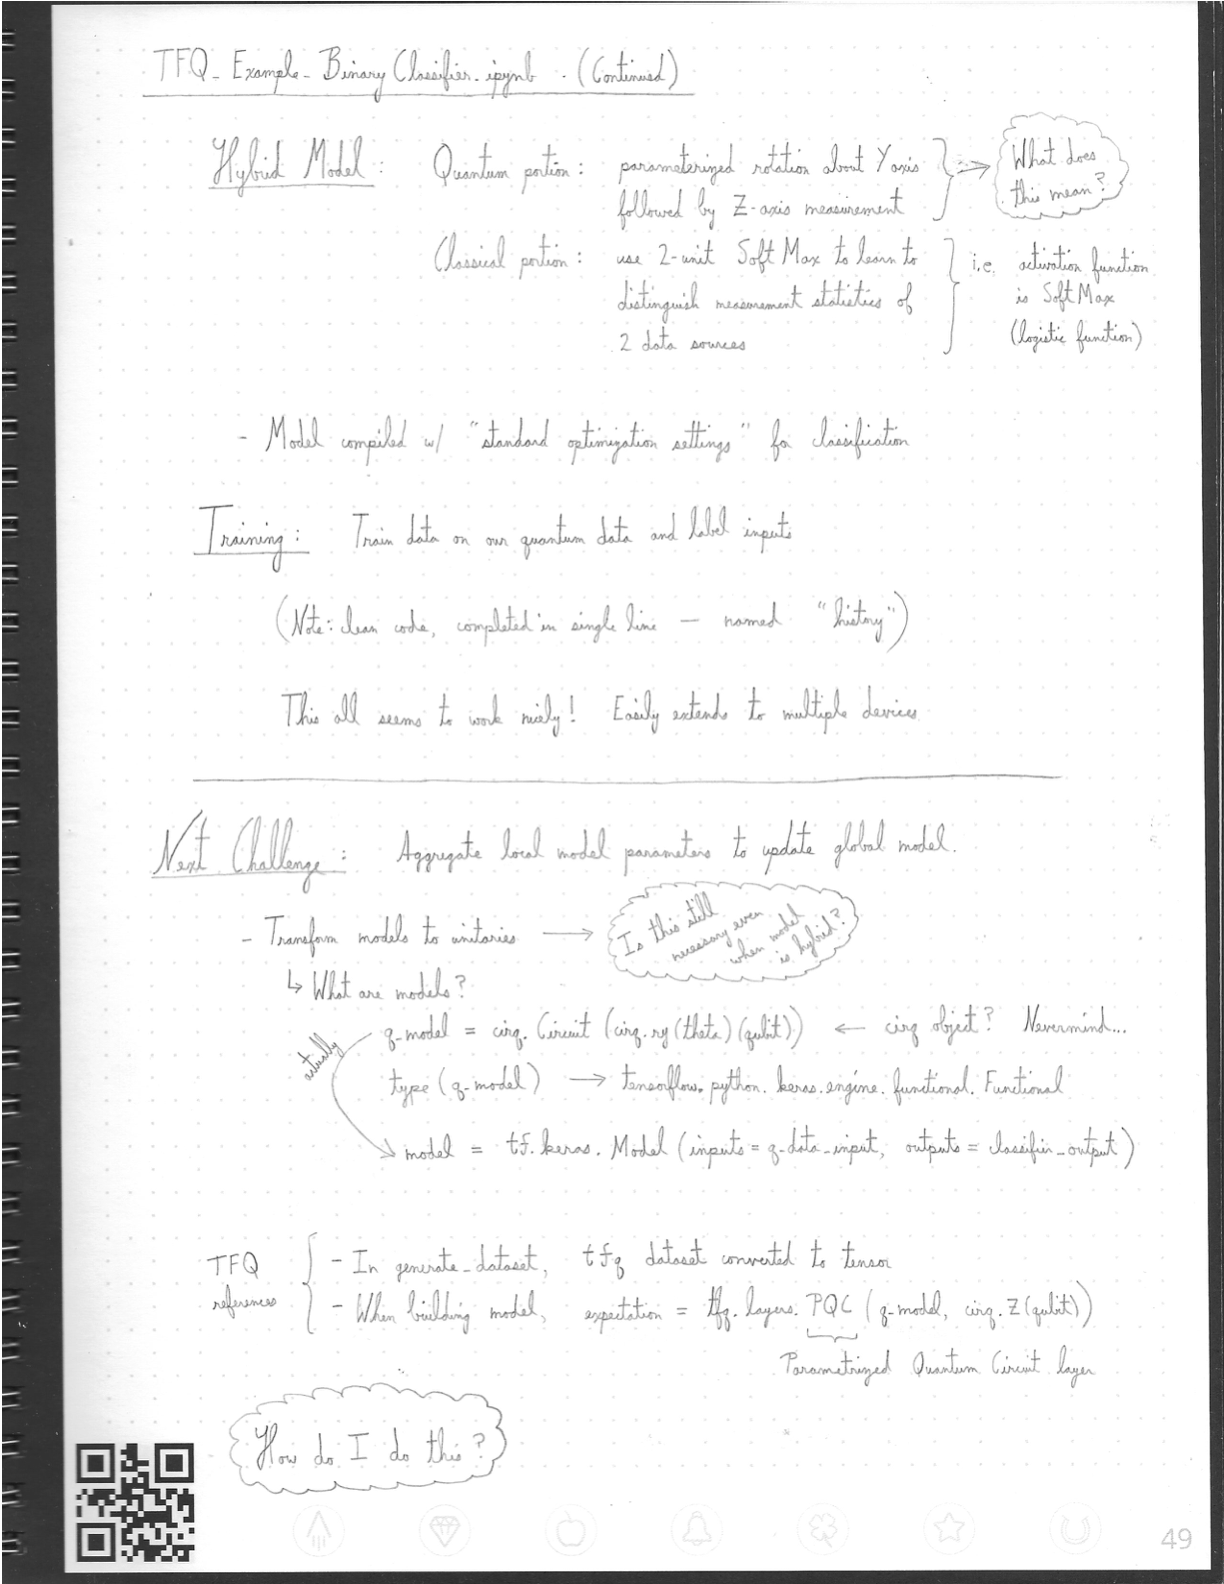 TFQ_Example_BinaryClassifier.ipynb . (Continued)
Hybrid Model : Quantum portion : parameterized rotation about Y axis
followed by Z-axis measurement
What does
this mean?
Classical portion : use 2-unit SoftMax to learn to
distinguish measurement statistics of
2 data sources
i.e. activation function
is SoftMax
(logistic function)
- Model compiled w/ "standard optimization settings" for classification
Training : Train data on our quantum data and label inputs
(Note: clean code, completed in single line — named "history")
This all seems to work nicely! Easily extends to multiple devices
Next Challenge : Aggregate local model parameters to update global model.
- Transform models to unitaries →
Is this still
necessary even
when model
is hybrid?
↳ What are models?
q_model = cirq.Circuit (cirq.ry(theta)(qubit)) ← cirq object? Nevermind...
actually
type (q_model) → tensorflow.python.keras.engine.functional.Functional
model = tf.keras.Model (inputs = q_data_input, outputs = classifier_output)
TFQ
references
- In generate_dataset, tfq dataset converted to tensor
- When building model, expectation = tfq.layers.PQC (q_model, cirq.Z(qubit))
Parametrized Quantum Circuit layer
How do I do this?
49